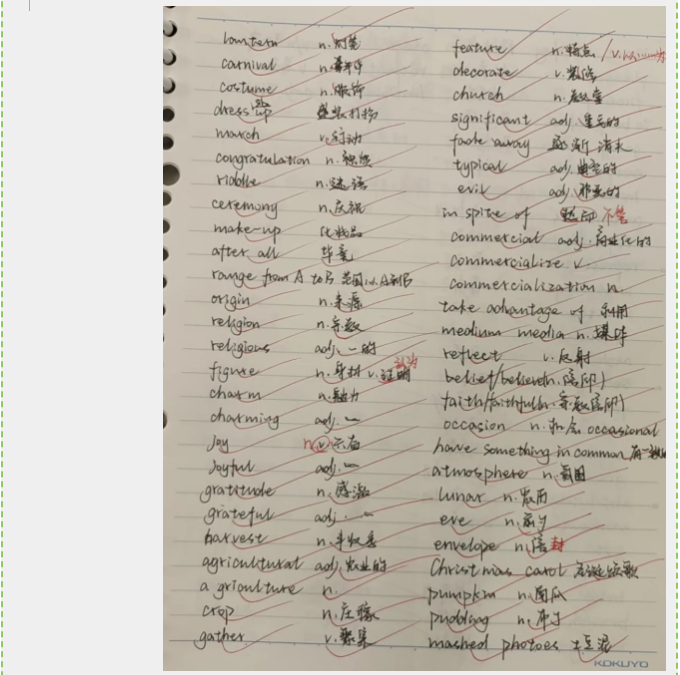 lantern n.灯笼
carnival n.嘉年华
costume n.服饰
dress up 盛装打扮
march v.行动
congratulation n.祝贺
riddle n.谜语
ceremony n.庆祝
make-up 化妆品
after all 毕竟
range from A to B 范围从A到B
origin n.来源
religion n.宗教
religious adj. 一的
figure n.身材 v.认为
charm n.魅力
charming adj. 一
joy n.
joyful adj. 一
gratitude n.感激
grateful adj. 一
harvest n.丰收季
agricultural adj.农业的
agriculture n.
crop n.庄稼
gather v.聚集
feature n.特点 /v.以……为
decorate v.装饰
church n.教堂
significant adj.重要的
fade away 逐渐消失
typical adj.典型的
evil adj.邪恶的
in spite of 不管
commercial adj.商业化的
commercialize v.
commercialization n.
take advantage of 利用
medium media n.媒体
reflect v.反射
belief/believe(n.信仰)
faith/faithful(n.宗教信仰)
occasion n. occasional
have something in common 有一致的
atmosphere n.氛围
lunar n.农历
eve n.前夕
envelope n.信封
Christmas carol 圣诞颂歌
pumpkin n.南瓜
pudding n.布丁
mashed photoes 土豆泥
KOKUYO